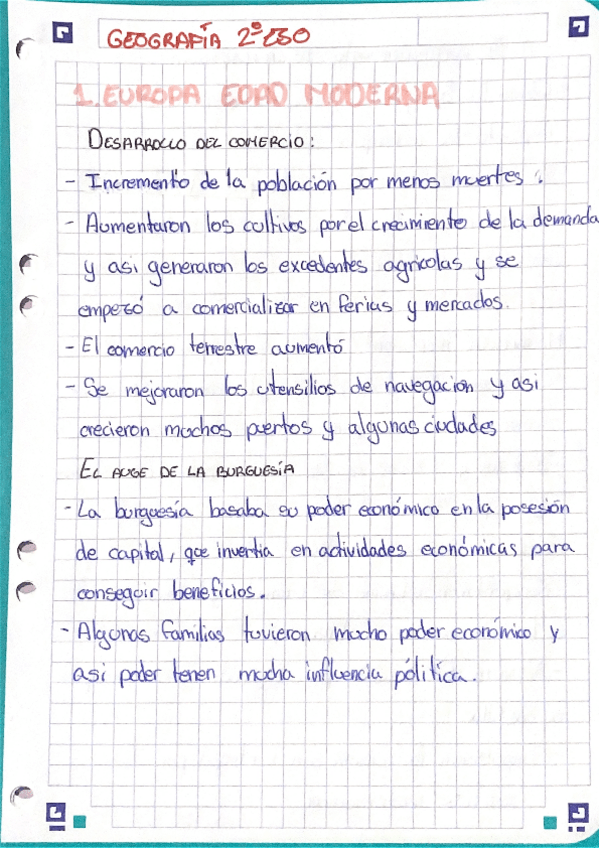 GEOGRAFÍA 2º ESO
1. EUROPA EDAD MODERNA
DESARROLLO DEL COMERCIO:
- Incremento de la población por menos muertes.
- Aumentaron los cultivos por el crecimiento de la demanda
y asi generaron los excedentes agrícolas y se
empezó a comercializar en ferias y mercados.
- El comercio terrestre aumentó
- Se mejoraron los utensilios de navegación y asi
crecieron muchos puertos y algunas ciudades
EL AUGE DE LA BURGUESÍA
- La burguesía basaba su poder económico en la posesión
de capital, que invertia en actividades económicas para
conseguir beneficios.
- Algunas familias tuvieron mucho poder económico y
asi poder tenen mucha influencia pólitica.